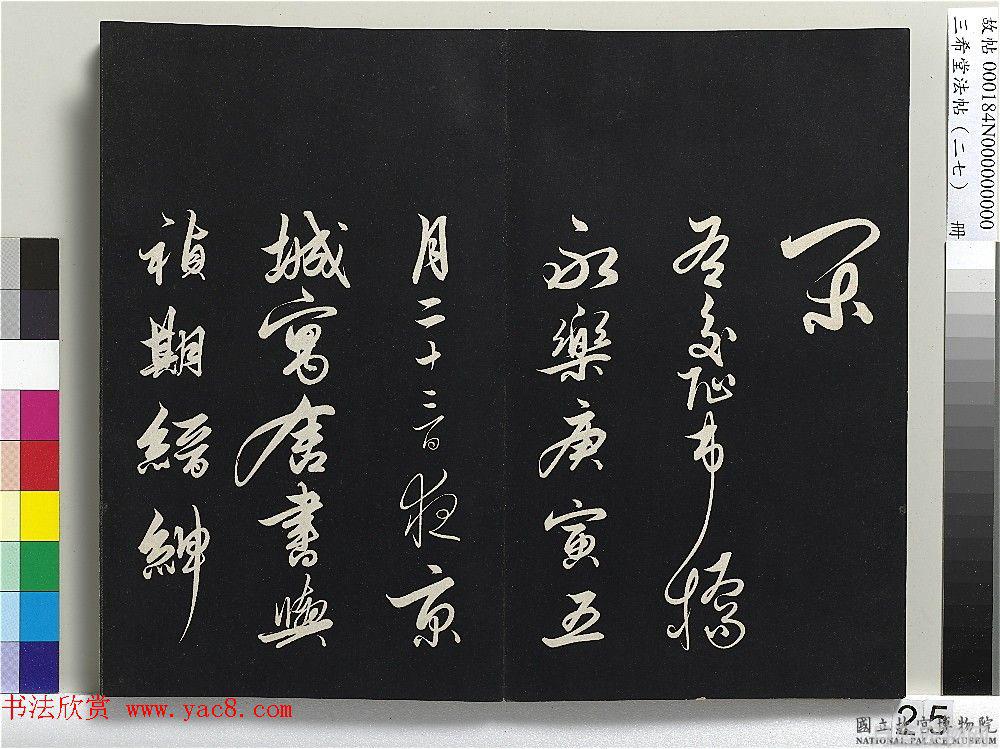 閑
右交阯市橋
永樂庚寅五
月二十三日夜京
城寓舍書與
禎期縉紳
故帖 000184N000000000
三希堂法帖（二七） 冊
书法欣赏 www.yac8.com
25
國立故宮博物院
NATIONAL PALACE MUSEUM